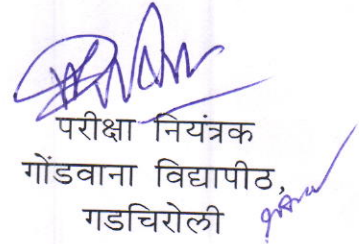 परीक्षा नियंत्रक
गोंडवाना विद्यापीठ,
गडचिरोली